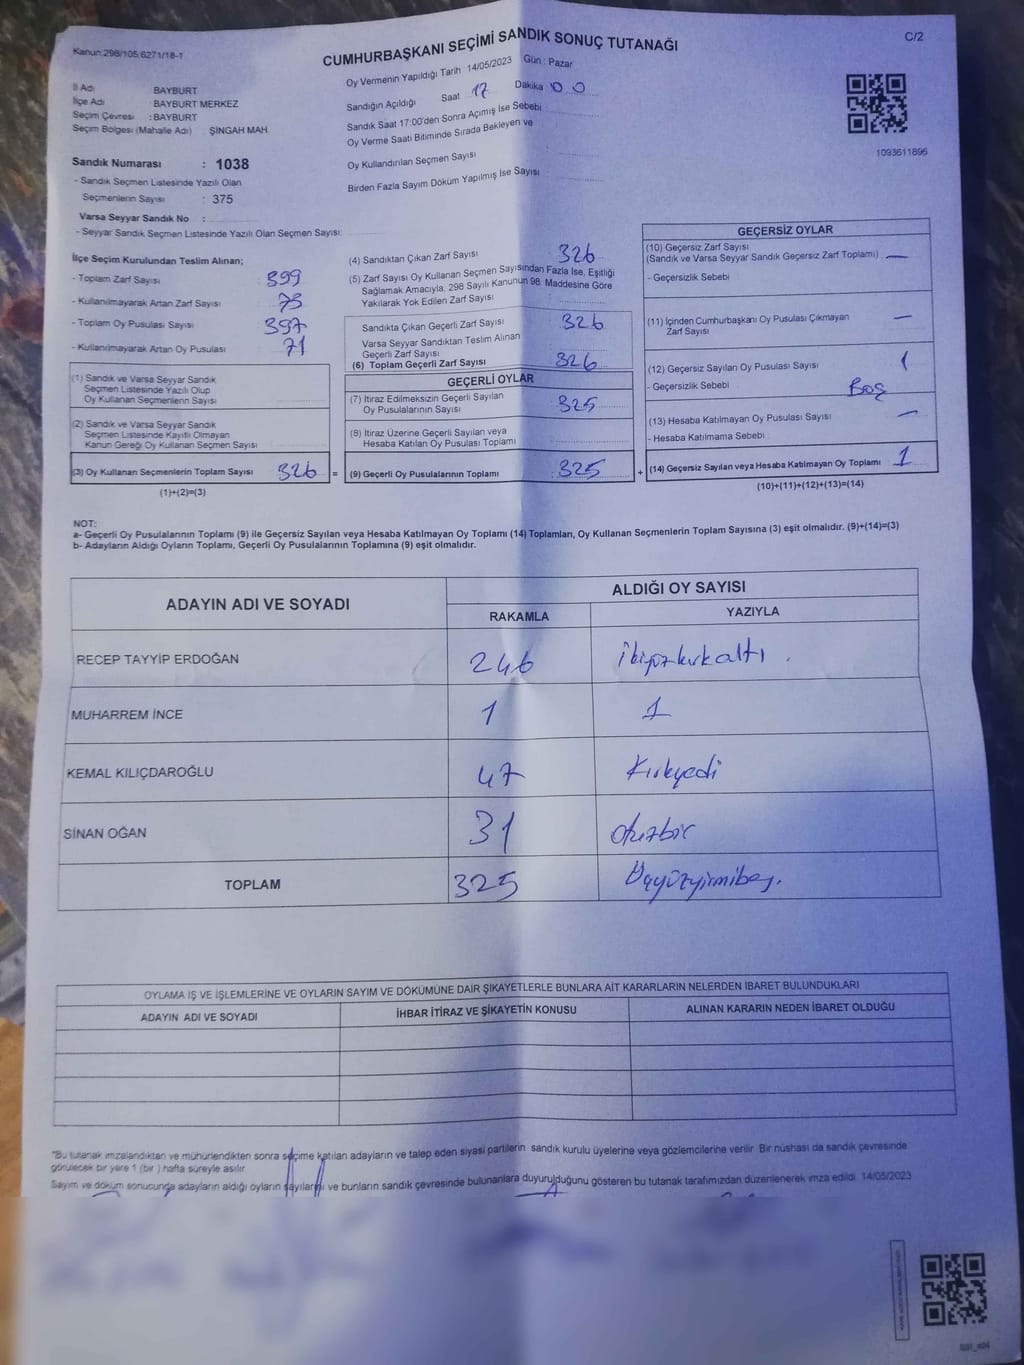 Kanun:298/105:6271/18-1
CUMHURBAŞKANI SEÇİMİ SANDIK SONUÇ TUTANAĞI
C/2
İl Adı BAYBURT
İlçe Adı BAYBURT MERKEZ
Seçim Çevresi : BAYBURT
Seçim Bölgesi (Mahalle Adı) : ŞİNGAH MAH
Sandık Numarası : 1038
- Sandık Seçmen Listesinde Yazılı Olan
Seçmenlerin Sayısı : 375
Varsa Seyyar Sandık No :
- Seyyar Sandık Seçmen Listesinde Yazılı Olan Seçmen Sayısı:
Oy Vermenin Yapıldığı Tarih 14/05/2023 Gün : Pazar
Sandığın Açıldığı Saat 17 Dakika 00
Sandık Saat 17:00'den Sonra Açımış İse Sebebi
Oy Verme Saati Bitiminde Sırada Bekleyen ve
Oy Kullandırılan Seçmen Sayısı
Birden Fazla Sayım Döküm Yapılmış İse Sayısı
1093611896
İlçe Seçim Kurulundan Teslim Alınan;
- Toplam Zarf Sayısı 399
- Kullanılmayarak Artan Zarf Sayısı 73
- Toplam Oy Pusulası Sayısı 397
- Kullanılmayarak Artan Oy Pusulası 71
(1) Sandık ve Varsa Seyyar Sandık
Seçmen Listesinde Yazılı Olup
Oy Kullanan Seçmenlerin Sayısı
(2) Sandık ve Varsa Seyyar Sandık
Seçmen Listesinde Kayıtlı Olmayan
Kanun Gereği Oy Kullanan Seçmen Sayısı
(3) Oy Kullanan Seçmenlerin Toplam Sayısı 326 =
(1)+(2)=(3)
(4) Sandıktan Çıkan Zarf Sayısı 326
(5) Zarf Sayısı Oy Kullanan Seçmen Sayısından Fazla İse, Eşitliği
Sağlamak Amacıyla, 298 Sayılı Kanunun 98. Maddesine Göre
Yakılarak Yok Edilen Zarf Sayısı
Sandıkta Çıkan Geçerli Zarf Sayısı 326
Varsa Seyyar Sandıktan Teslim Alınan
Geçerli Zarf Sayısı
(6) Toplam Geçerli Zarf Sayısı 326
GEÇERLİ OYLAR
(7) İtiraz Edilmeksizin Geçerli Sayılan
Oy Pusulalarının Sayısı 325
(8) İtiraz Üzerine Geçerli Sayılan veya
Hesaba Katılan Oy Pusulası Toplamı
(9) Geçerli Oy Pusulalarının Toplamı 325 +
GEÇERSİZ OYLAR
(10) Geçersiz Zarf Sayısı
(Sandık ve Varsa Seyyar Sandık Geçersiz Zarf Toplamı) —
- Geçersizlik Sebebi
(11) İçinden Cumhurbaşkanı Oy Pusulası Çıkmayan
Zarf Sayısı —
(12) Geçersiz Sayılan Oy Pusulası Sayısı 1
- Geçersizlik Sebebi Boş
(13) Hesaba Katılmayan Oy Pusulası Sayısı —
- Hesaba Katılmama Sebebi
(14) Geçersiz Sayılan veya Hesaba Katılmayan Oy Toplamı 1
(10)+(11)+(12)+(13)=(14)
NOT:
a- Geçerli Oy Pusulalarının Toplamı (9) ile Geçersiz Sayılan veya Hesaba Katılmayan Oy Toplamı (14) Toplamları, Oy Kullanan Seçmenlerin Toplam Sayısına (3) eşit olmalıdır. (9)+(14)=(3)
b- Adayların Aldığı Oyların Toplamı, Geçerli Oy Pusulalarının Toplamına (9) eşit olmalıdır.
ADAYIN ADI VE SOYADI
ALDIĞI OY SAYISI
RAKAMLA YAZIYLA
RECEP TAYYİP ERDOĞAN 246 ikiyüzkırkaltı .
MUHARREM İNCE 1 1
KEMAL KILIÇDAROĞLU 47 Kırkyedi
SİNAN OĞAN 31 otuzbir
TOPLAM 325 Üçyüzyirmibeş.
OYLAMA İŞ VE İŞLEMLERİNE VE OYLARIN SAYIM VE DÖKÜMÜNE DAİR ŞİKAYETLERLE BUNLARA AİT KARARLARIN NELERDEN İBARET BULUNDUKLARI
ADAYIN ADI VE SOYADI İHBAR İTİRAZ VE ŞİKAYETİN KONUSU ALINAN KARARIN NEDEN İBARET OLDUĞU
*Bu tutanak imzalandıktan ve mühürlendikten sonra seçime katılan adayların ve talep eden siyasi partilerin sandık kurulu üyelerine veya gözlemcilerine verilir. Bir nüshası da sandık çevresinde
görülecek bir yere 1 (bir) hafta süreyle asılır.
Sayım ve döküm sonucunda adayların aldığı oyların sayılarını ve bunların sandık çevresinde bulunanlara duyurulduğunu gösteren bu tutanak tarafımızdan düzenlenerek imza edildi. 14/05/2023